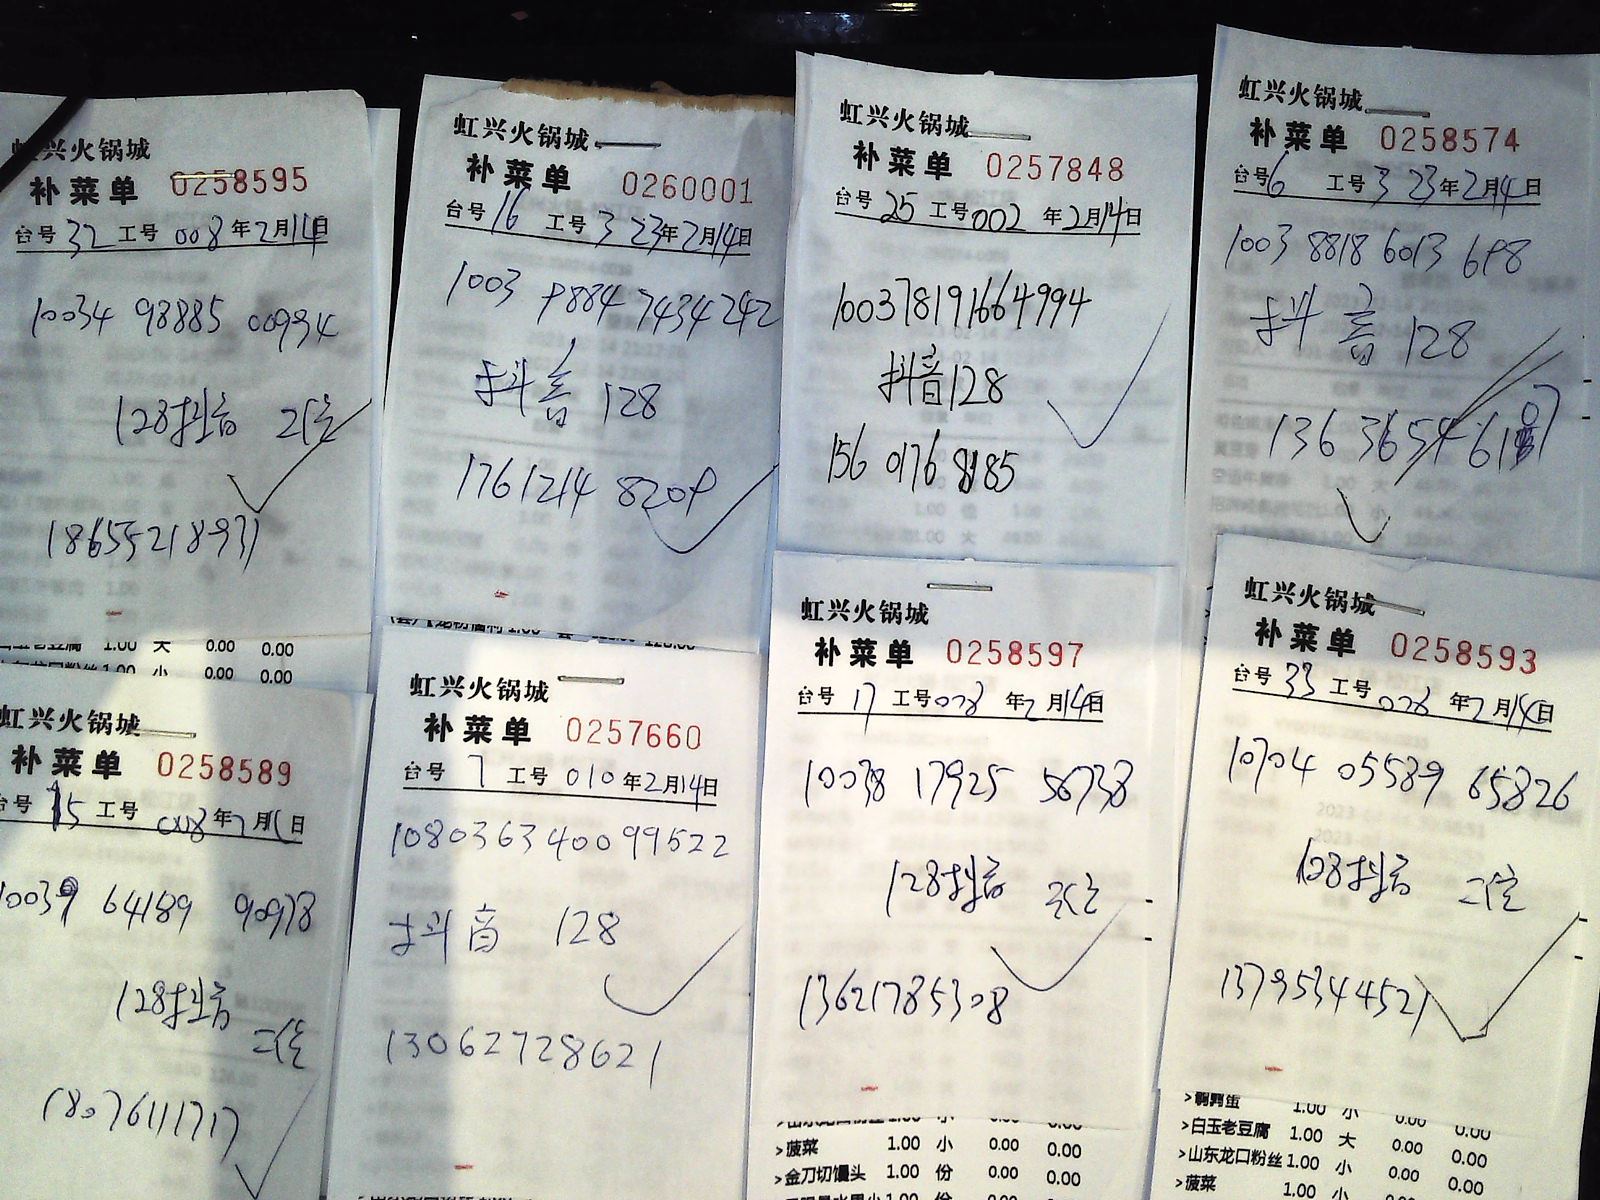 虹兴火锅城
补菜单 0258595
台号 32 工号 008 年 2月14日
10034 98885 00934
128抖音 2位
18655218931
大 0.00 0.00
小 0.00 0.00
虹兴火锅城
补菜单 0260001
台号 16 工号 3 23年2月14日
1003 9884 7434242
抖音 128
1761214 8209
虹兴火锅城
补菜单 0257848
台号 25 工号 002 年 2月14日
100378191664994
抖音128
156 0176 8185
虹兴火锅城
补菜单 0258574
台号 6 工号 3 23年2月14日
1003 8818 6013 698
抖音 128
136 3654
虹兴火锅城
补菜单 0258589
台号 15 工号 008年2月 日
10039 64189 90978
128抖音
二位
18076111717
虹兴火锅城
补菜单 0257660
台号 7 工号 010 年2月14日
108036340099522
抖音 128
13062728621
虹兴火锅城
补菜单 0258597
台号 17 工号 008 年2月14日
10038 17925 56738
128抖音
13621785308
>菠菜 1.00 小 0.00 0.00
>金刀切馒头 1.00 份 0.00 0.00
虹兴火锅城
补菜单 0258593
台号 33 工号 008 年2月14日
10704 05589 65826
128抖音 二位
13795344521
1.00 小 0.00 0.00
>白玉老豆腐 1.00 大 0.00 0.00
>山东龙口粉丝 1.00 小 0.00 0.00
>菠菜 1.00 小 0.00 0.00